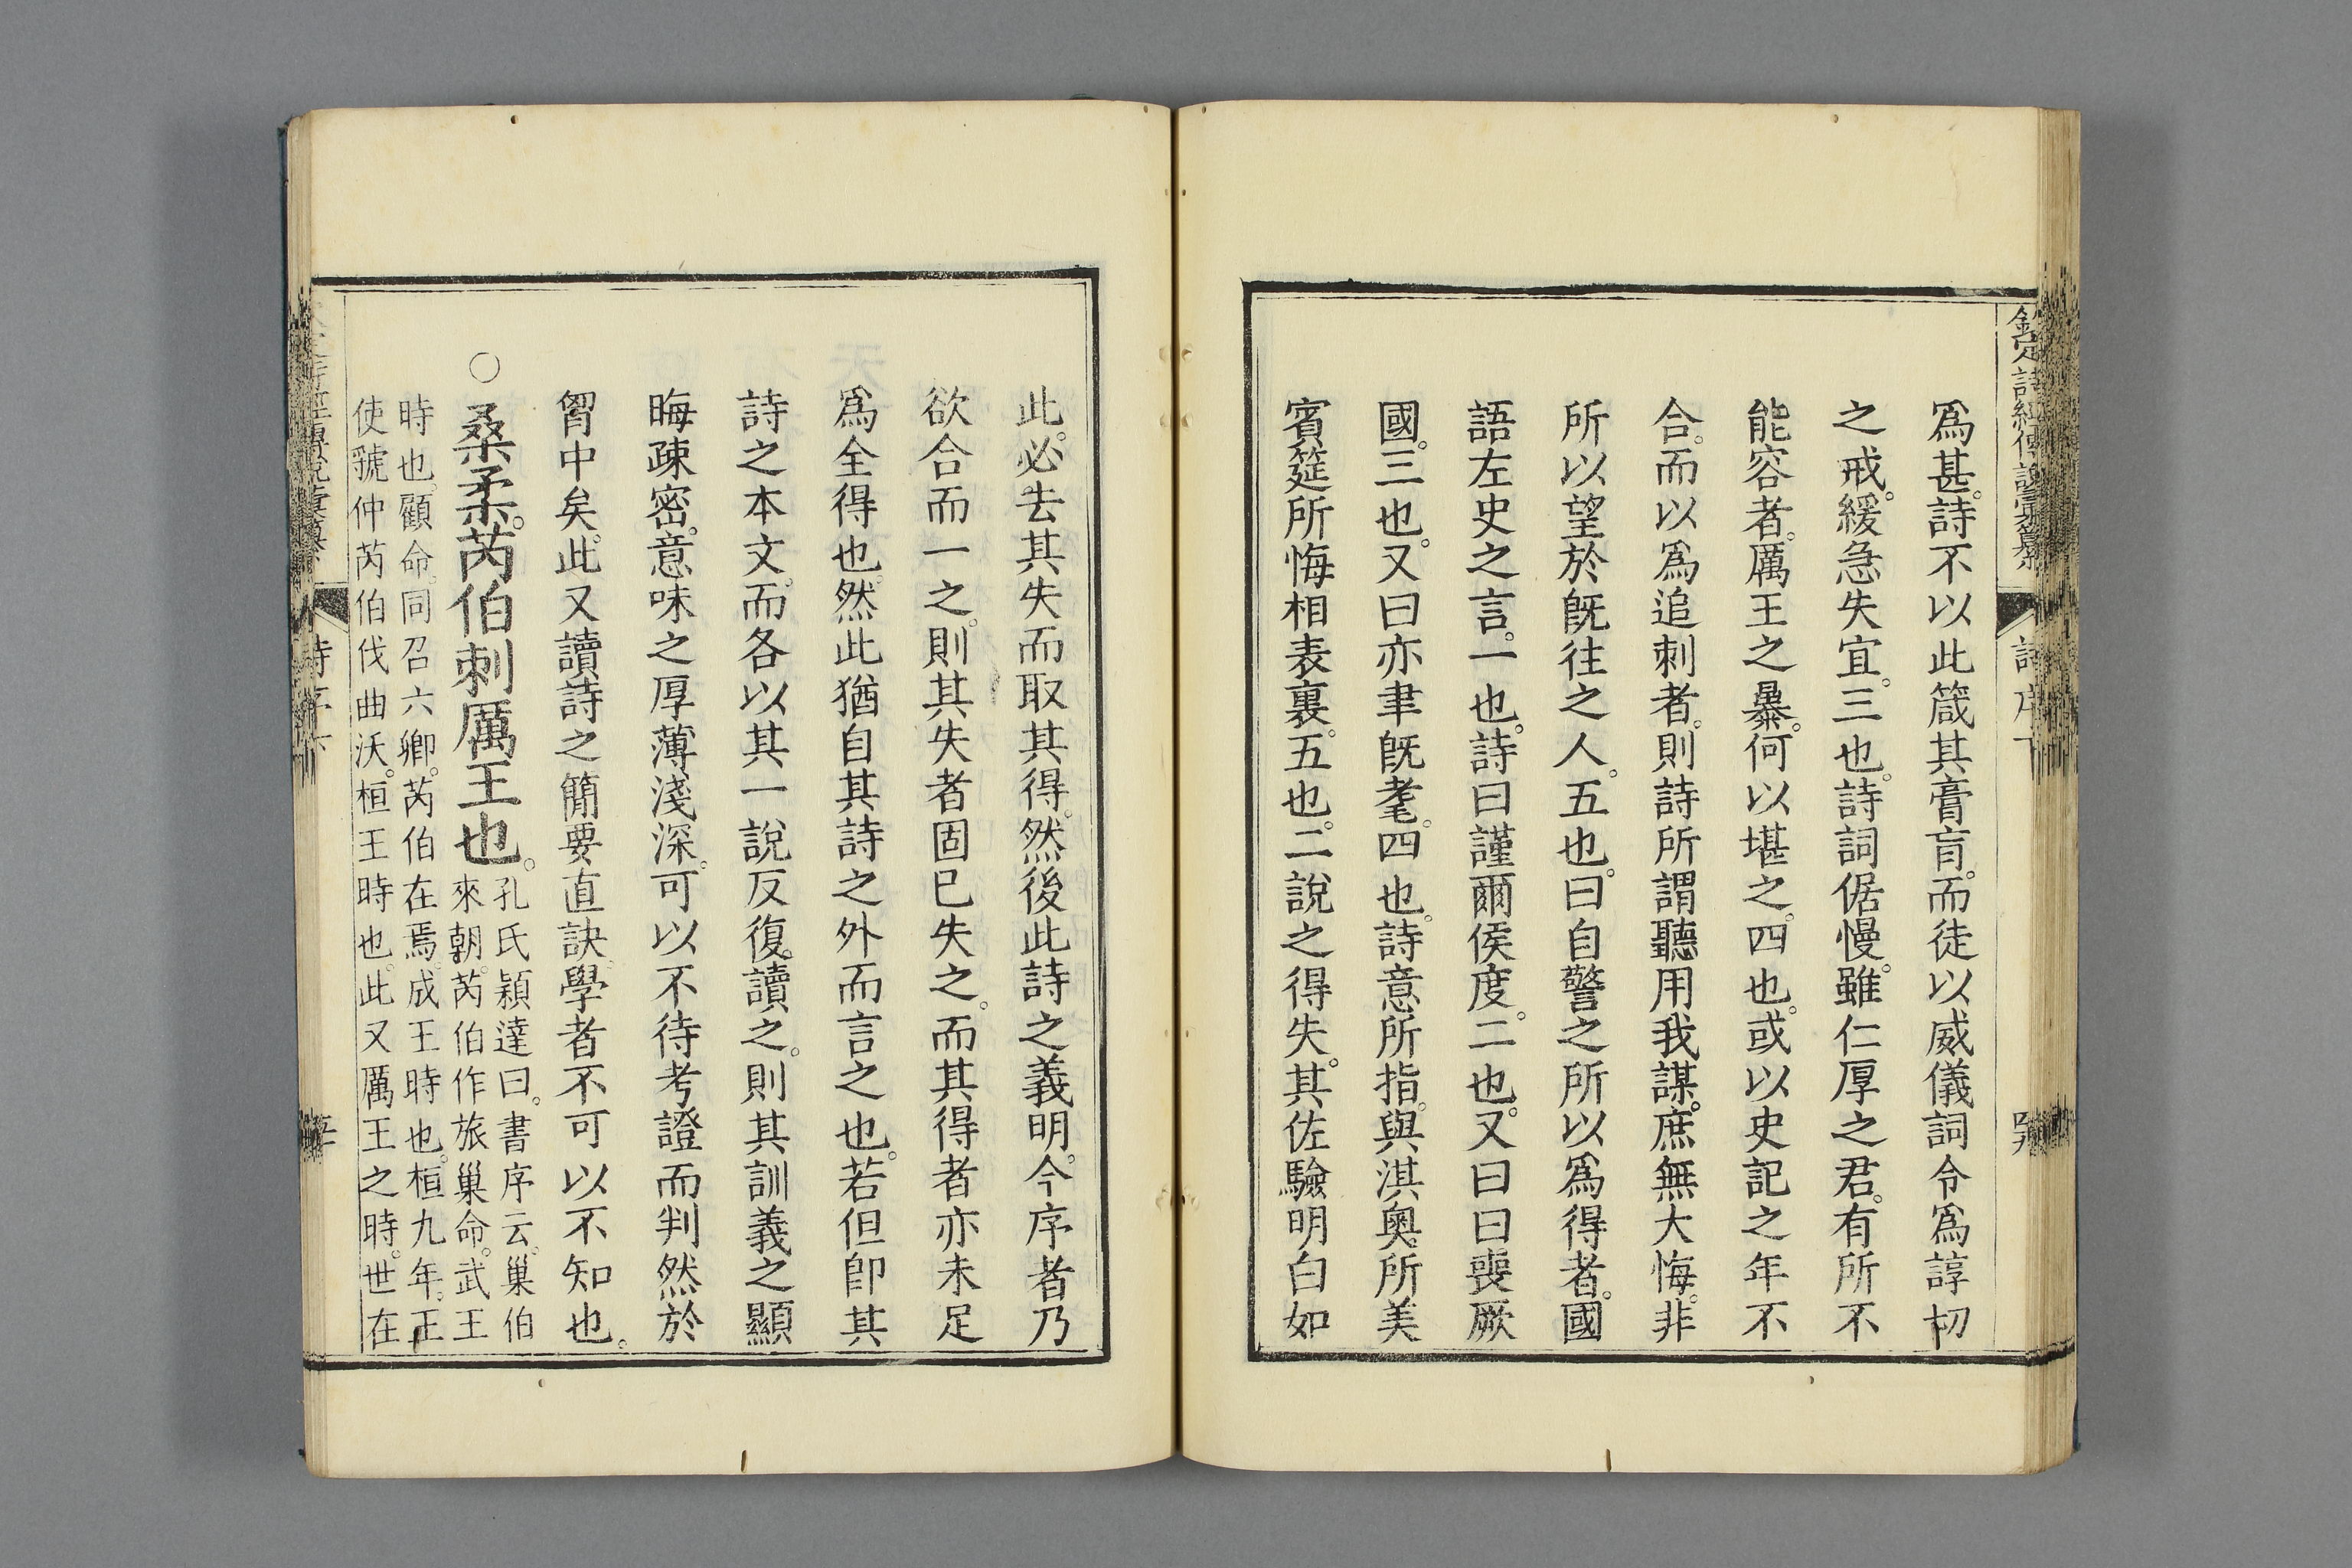 欽定詩經傳說彙纂 詩序下
爲甚。詩不以此箴其膏肓。而徒以威儀詞令爲諄切
之戒。緩急失宜。三也。詩詞倨慢。雖仁厚之君。有所不
能容者。厲王之暴。何以堪之。四也。或以史記之年不
合。而以爲追刺者。則詩所謂聽用我謀。庶無大悔。非
所以望於旣往之人。五也。曰自警之所以爲得者。國
語左史之言。一也。詩曰謹爾侯度。二也。又曰曰喪厥
國。三也。又曰亦聿旣耄。四也。詩意所指。與淇奧所美
賓筵所悔相表裏。五也。二說之得失。其佐驗明白如
此。必去其失而取其得。然後此詩之義明。今序者乃
欲合而一之。則其失者固已失之。而其得者亦未足
爲全得也。然此猶自其詩之外而言之也。若但卽其
詩之本文。而各以其一說反復讀之。則其訓義之顯
晦疎密。意味之厚薄淺深。可以不待考證而判然於
胷中矣。此又讀詩之簡要直訣。學者不可以不知也。
○桑柔。芮伯刺厲王也。
孔氏穎達曰。書序云。巢伯
來朝。芮伯作旅巢命。武王
時也。顧命。同召六卿。芮伯在焉。成王時也。桓九年。王
使虢仲芮伯伐曲沃。桓王時也。此又厲王之時。世在